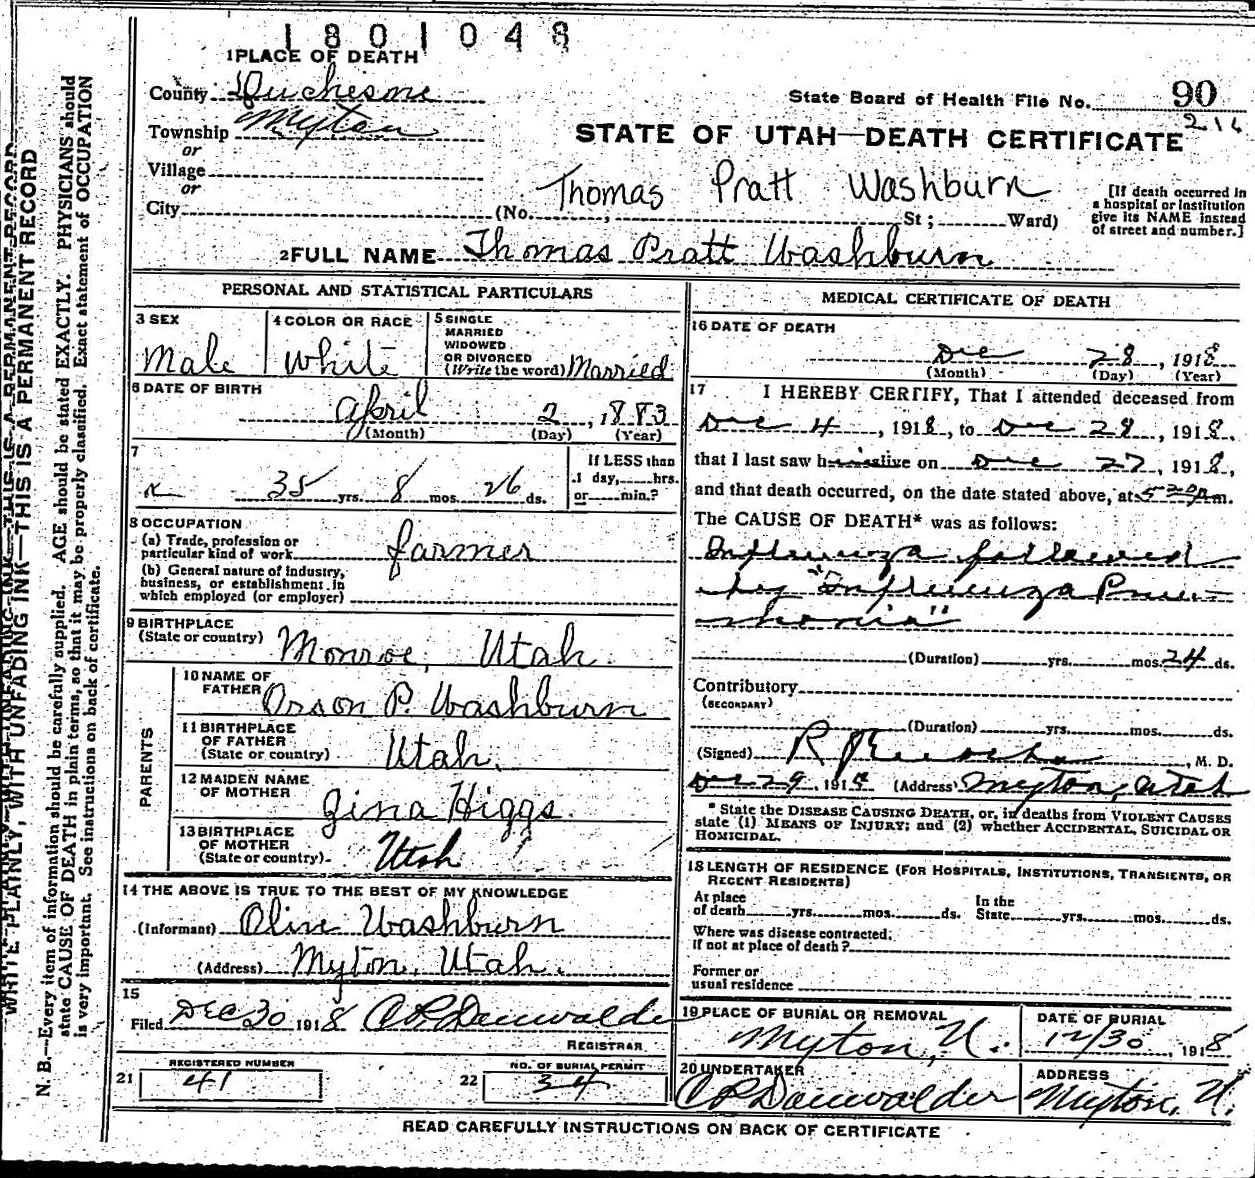 1801048
1 PLACE OF DEATH
County Duchesne
State Board of Health File No. 90
216
Township Myton
or
STATE OF UTAH—DEATH CERTIFICATE
Village
or
Thomas Pratt Washburn
City (No. , St; Ward)
[If death occurred in
a hospital or institution
give its NAME instead
of street and number.]
2 FULL NAME Thomas Pratt Washburn
PERSONAL AND STATISTICAL PARTICULARS
3 SEX
Male
4 COLOR OR RACE
White
5 SINGLE
MARRIED
WIDOWED
OR DIVORCED
(Write the word) Married
6 DATE OF BIRTH
April 2, 1883
(Month) (Day) (Year)
7
35 yrs. 8 mos. 26 ds.
If LESS than
1 day, hrs.
or min.?
8 OCCUPATION
(a) Trade, profession or
particular kind of work farmer
(b) General nature of industry,
business, or establishment in
which employed (or employer)
9 BIRTHPLACE
(State or country) Monroe, Utah.
PARENTS
10 NAME OF
FATHER Orson P. Washburn
11 BIRTHPLACE
OF FATHER
(State or country) Utah.
12 MAIDEN NAME
OF MOTHER Zina Higgs.
13 BIRTHPLACE
OF MOTHER
(State or country) Utah
14 THE ABOVE IS TRUE TO THE BEST OF MY KNOWLEDGE
(Informant) Olive Washburn
(Address) Myton, Utah.
15
Filed Dec 30 1918 C P Dauwalder
REGISTRAR
REGISTERED NUMBER
21 41
NO. OF BURIAL PERMIT
22 34
MEDICAL CERTIFICATE OF DEATH
16 DATE OF DEATH
Dec 28, 1918
(Month) (Day) (Year)
17 I HEREBY CERTIFY, That I attended deceased from
Dec 4, 1918, to Dec 28, 1918,
that I last saw h alive on Dec 27, 1918,
and that death occurred, on the date stated above, at 5 20 p m.
The CAUSE OF DEATH* was as follows:
Influenza followed
by "Influenza Pneu-
monia"
(Duration) yrs. mos. 24 ds.
Contributory
(SECONDARY)
(Duration) yrs. mos. ds.
(Signed) R J , M. D.
Dec 29, 1918 (Address) Myton, Utah
* State the DISEASE CAUSING DEATH, or, in deaths from VIOLENT CAUSES
state (1) MEANS OF INJURY; and (2) whether ACCIDENTAL, SUICIDAL OR
HOMICIDAL.
18 LENGTH OF RESIDENCE (FOR HOSPITALS, INSTITUTIONS, TRANSIENTS, OR
RECENT RESIDENTS)
At place
of death yrs. mos. ds.
In the
State yrs. mos. ds.
Where was disease contracted,
if not at place of death?
Former or
usual residence
19 PLACE OF BURIAL OR REMOVAL
Myton, U.
DATE OF BURIAL
12/30, 1918
20 UNDERTAKER
C P Dauwalder
ADDRESS
Myton, U.
READ CAREFULLY INSTRUCTIONS ON BACK OF CERTIFICATE
WRITE PLAINLY, WITH UNFADING INK—THIS IS A PERMANENT RECORD
N. B.—Every item of information should be carefully supplied. AGE should be stated EXACTLY. PHYSICIANS should
state CAUSE OF DEATH in plain terms, so that it may be properly classified. Exact statement of OCCUPATION
is very important. See instructions on back of certificate.